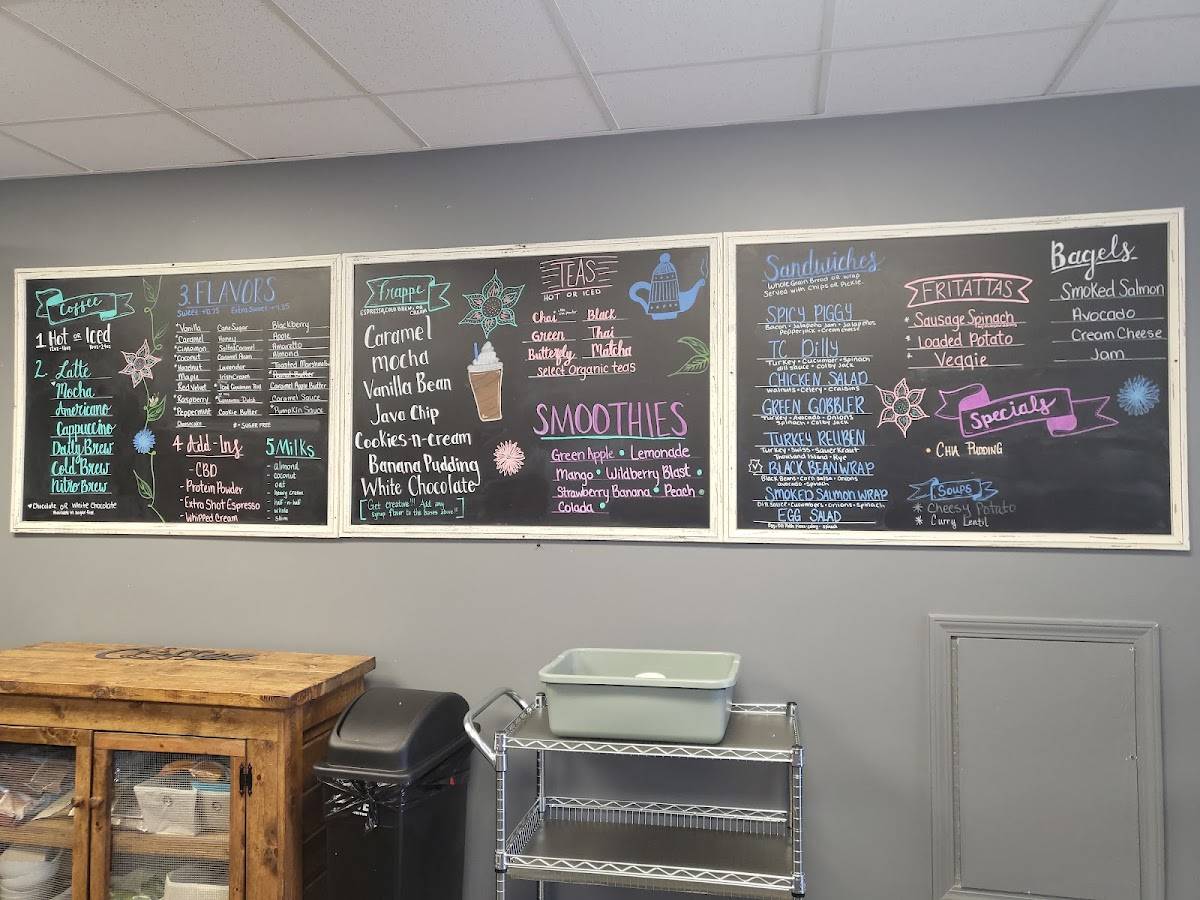 Coffee
1 Hot or Iced
2 Latte
*Mocha
Americano
Cappuccino
Daily Brew
Cold Brew
Nitro Brew
*Chocolate or White Chocolate
3. FLAVORS
Sweet +0.75 Extra Sweet +1.25
*Vanilla
*Caramel
*Cinnamon
*Coconut
*Hazelnut
Maple
Red Velvet
*Raspberry
*Peppermint
Cheesecake
Cane Sugar
Honey
Salted Caramel
Lavender
Irish Cream
Cookie Butter
Blackberry
Apple
Amaretto
Almond
Toasted Marshmallow
Peanut Butter
Caramel Apple Butter
Caramel Sauce
*Pumpkin Sauce
* = SUGAR FREE
4 Add-Ins
-CBD
-Protein Powder
-Extra Shot Espresso
-Whipped Cream
5 Milks
-almond
-coconut
-oat
-heavy cream
-half-n-half
-whole
-skim
Frappe
Caramel
mocha
Vanilla Bean
Java Chip
Cookies-n-cream
Banana Pudding
White Chocolate
Get creative!!! Add any
syrup flavor to the bases above!!
TEAS
HOT OR ICED
Chai Black
Green Thai
Butterfly Matcha
select Organic teas
SMOOTHIES
Green Apple • Lemonade
Mango • Wildberry Blast •
Strawberry Banana • Peach •
Colada •
Sandwiches
Whole Grain Bread or Wrap
Served with Chips or Pickle.
SPICY PIGGY
Bacon • Jalapeño Jam • Jalapeños
Pepperjack • Cream Cheese
TC Dilly
Turkey • Cucumber • Spinach
dill sauce • Colby Jack
CHICKEN SALAD
Walnuts • Celery • Craisins
GREEN GOBBLER
Turkey • Avocado • Onions
Spinach • Colby Jack
TURKEY REUBEN
Turkey • Swiss • Sauer Kraut
Thousand Island • Rye
BLACK BEAN WRAP
Black Beans • Corn Salsa • Onions
avocado • Spinach
SMOKED SALMON WRAP
Dill Sauce • Cucumbers • Onions • Spinach
EGG SALAD
FRITATTAS
* Sausage Spinach
* Loaded Potato
* Veggie
Specials
• CHIA PUDDING
Soups
* Cheesy Potato
* Curry Lentil
Bagels
Smoked Salmon
Avocado
Cream Cheese
Jam
Coffee